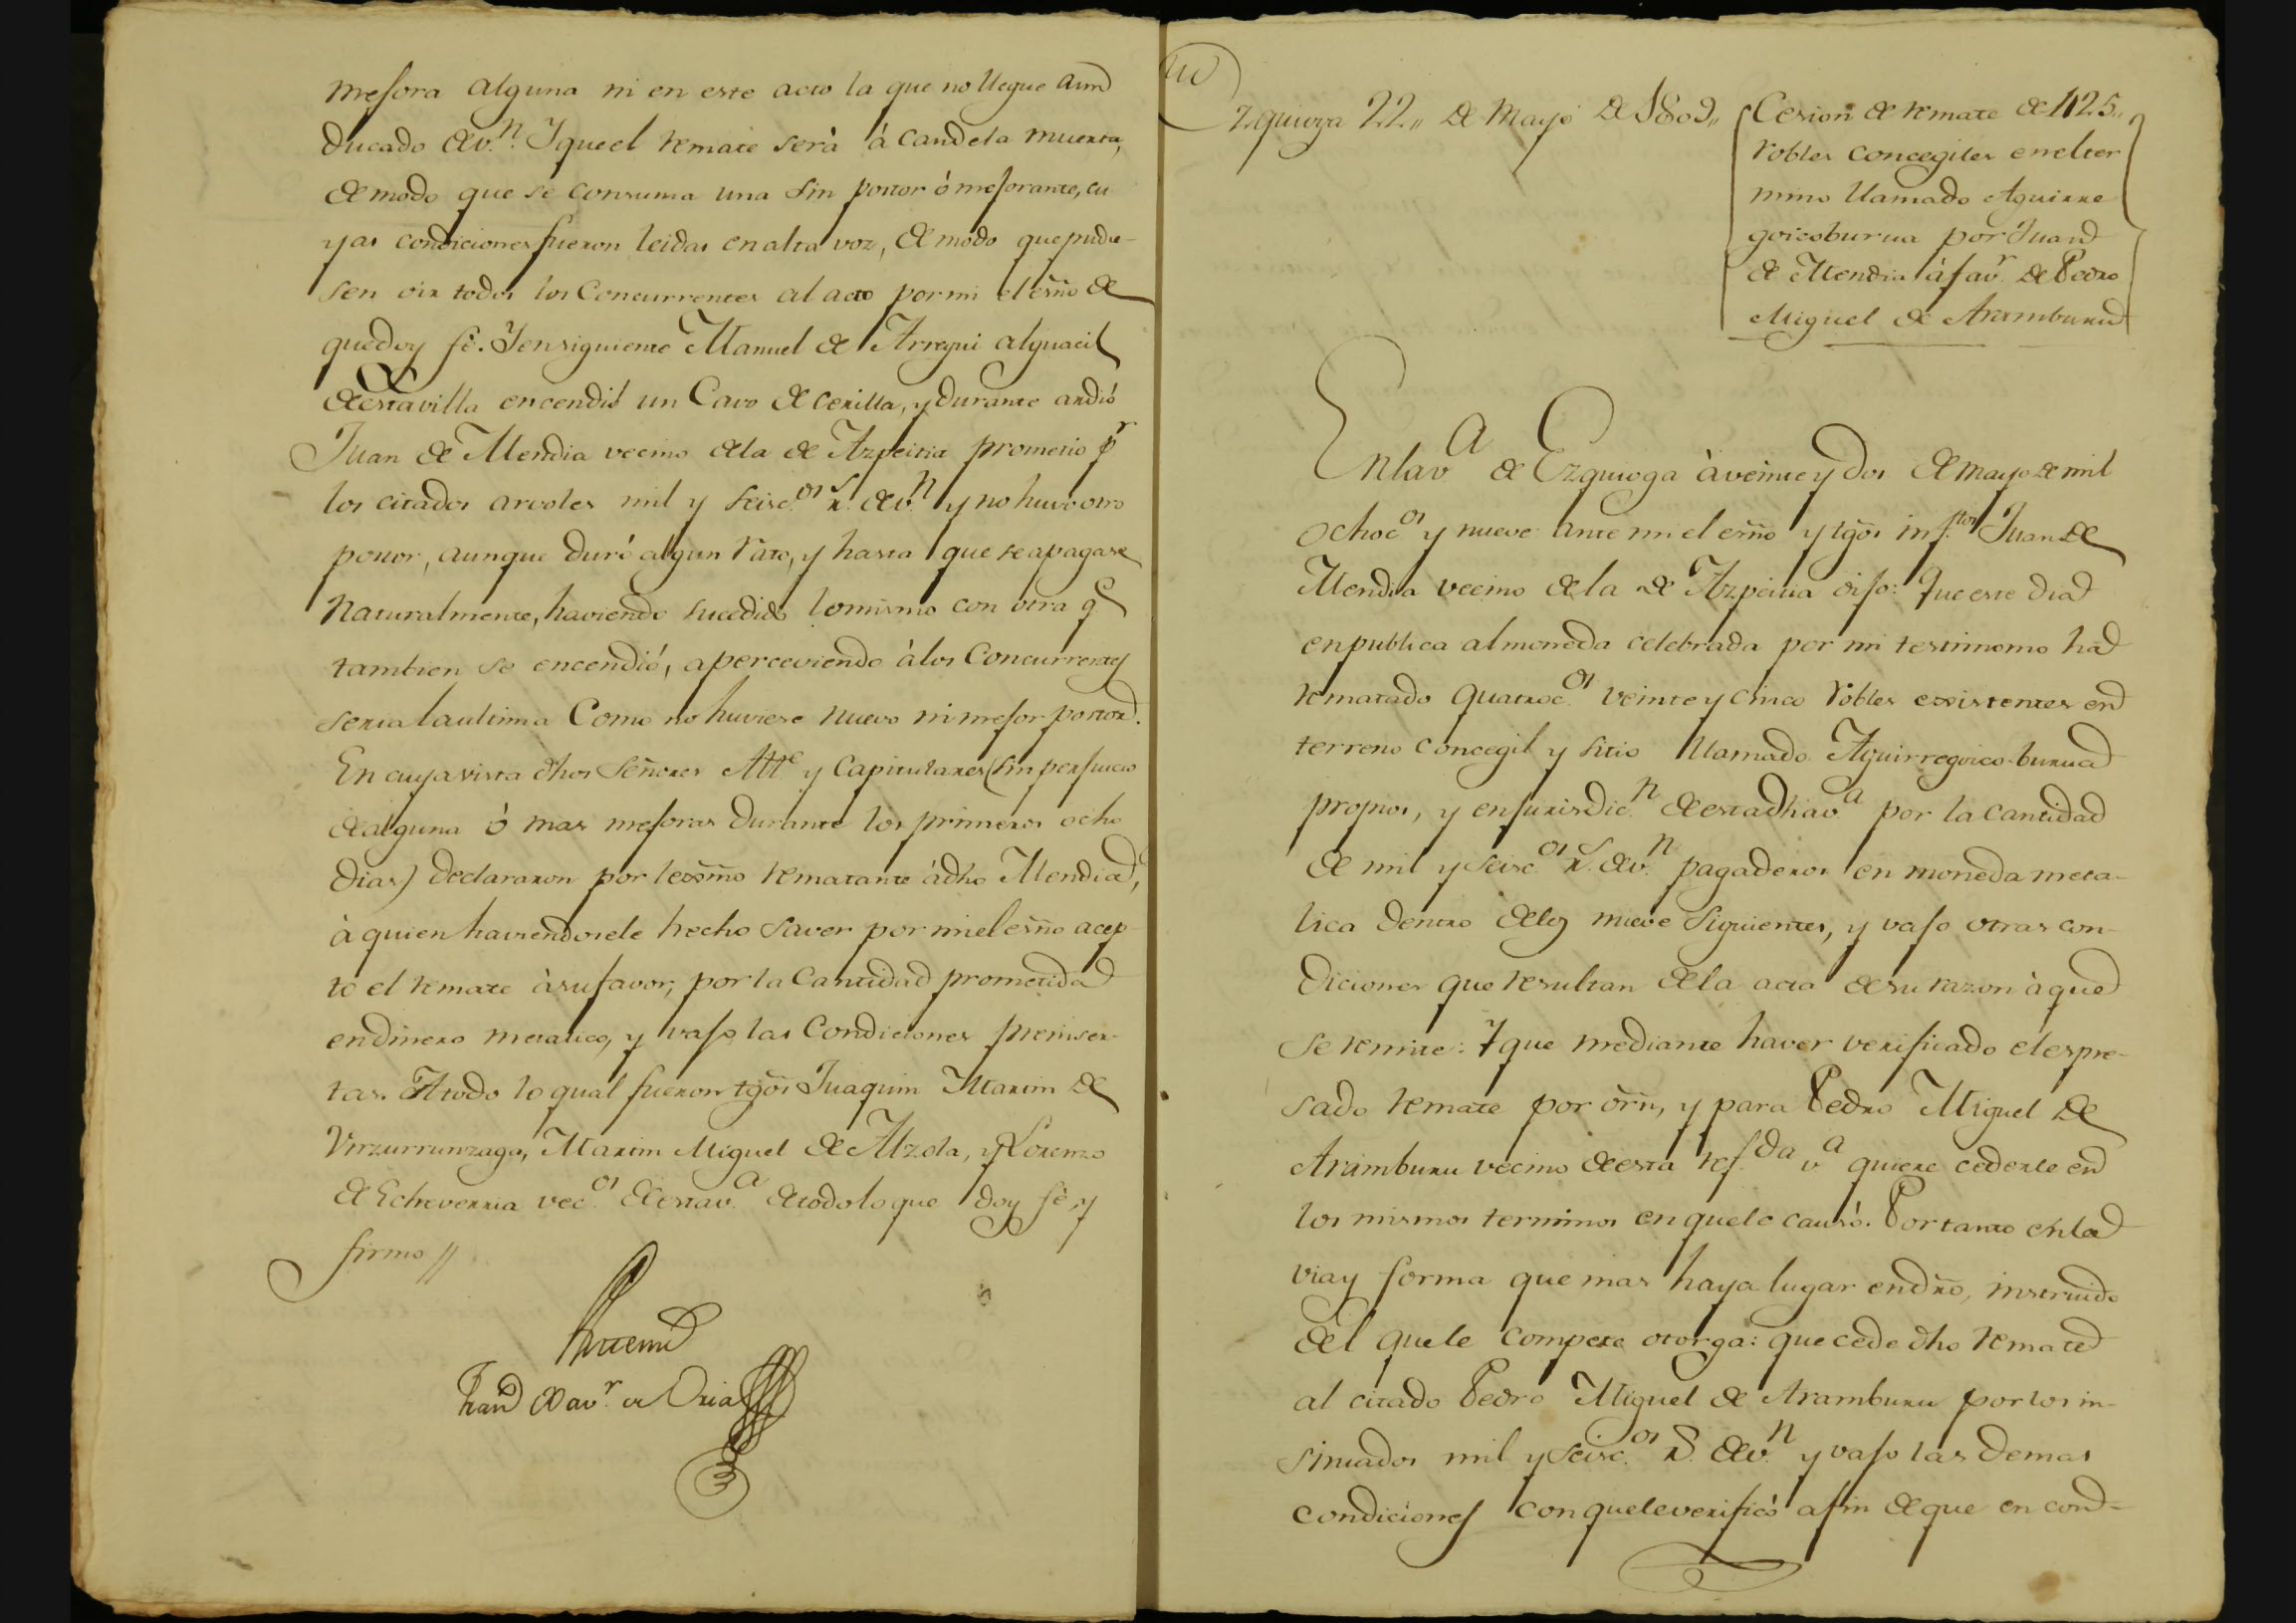 mejora alguna ni en este acto la que no llegue a un
ducado de v.n Y que el remate será à candela muerta,
de modo que se consuma una sin postor ó mejorante, cu
yas condiciones fueron leidas en alta voz, de modo que pudie-
sen oir todos los Concurrentes al acto por mi el esño de
que doy fé. Y en siguiente Manuel de Arregui alguacil
de esta villa encendió un Cavo de cerilla, y durante ardió
Juan de Mendia vecino de la de Azpeitia prometio p.r
los citados arvoles mil y seisc.os r.s de v.n y no huvo otro
postor, aunque duró algun rato, y hasta que se apagase
naturalmente, haviendo sucedido lo mismo con otra q.e
tambien se encendió, aperceviendo à los Concurrentes
seria la ultima Como no huviese nuevo ni mejor postor.
En cuya vista dhos Señores Alt.e y Capitulares (sin perjuicio
de alguna ó mas mejoras durante los primeros ocho
dias) declararon por lexmo rematante à dho Mendia,
à quien haviendosele hecho saver por mi el esño acep-
tó el remate à su favor, por la Cantidad prometida
en dinero metalico, y vajo las Condiciones preinser-
tas. A todo lo qual fueron tgõs Juaquin Martin de
Vrzurrunzaga, Martin Miguel de Alzola, y Lorenzo
de Echeverria vec.os de esta v.a de todo lo que doy fé, y
firmo //
Ante mi
Fran.co Xav.r de Oria
Ezquioga 22,, de Mayo de 1809,,
Cesion de remate de 425,,
robles concegiles en el ter
mino llamado Aguirre
goicoburua por Juan
de Mendia à fav.r de Pedro
Miguel de Aramburu
En la v.a de Ezquioga à veinte y dos de mayo de mil
ochoc.os y nueve ante mi el esño y tgõs inf.tos Juan de
Mendia vecino de la de Azpeitia dijo: Que este dia
en publica almoneda celebrada por mi testimonio ha
rematado quatroc.os veinte y cinco robles existentes en
terreno concegil y sitio llamado Aguirregoico-burua
propios, y en jurisdic.n de esta dha v.a por la cantidad
de mil y seisc.os r.s de v.n pagaderos en moneda meta-
lica dentro de los nueve siguientes, y vajo otras con-
diciones que resultan de la acta de su razon à que
se remite: Y que mediante haver verificado el espre-
sado remate por orn, y para Pedro Miguel de
Aramburu vecino de esta ref.da v.a quiere cederle en
los mismos terminos en que le causó. Por tanto en la
via y forma que mas haya lugar en dro, instruido
del que le compete otorga: que cede dho remate
al citado Pedro Miguel de Aramburu por los in-
sinuados mil y seisc.os r.s de v.n y vajo las demas
condiciones con que le verificó a fin de que en con-